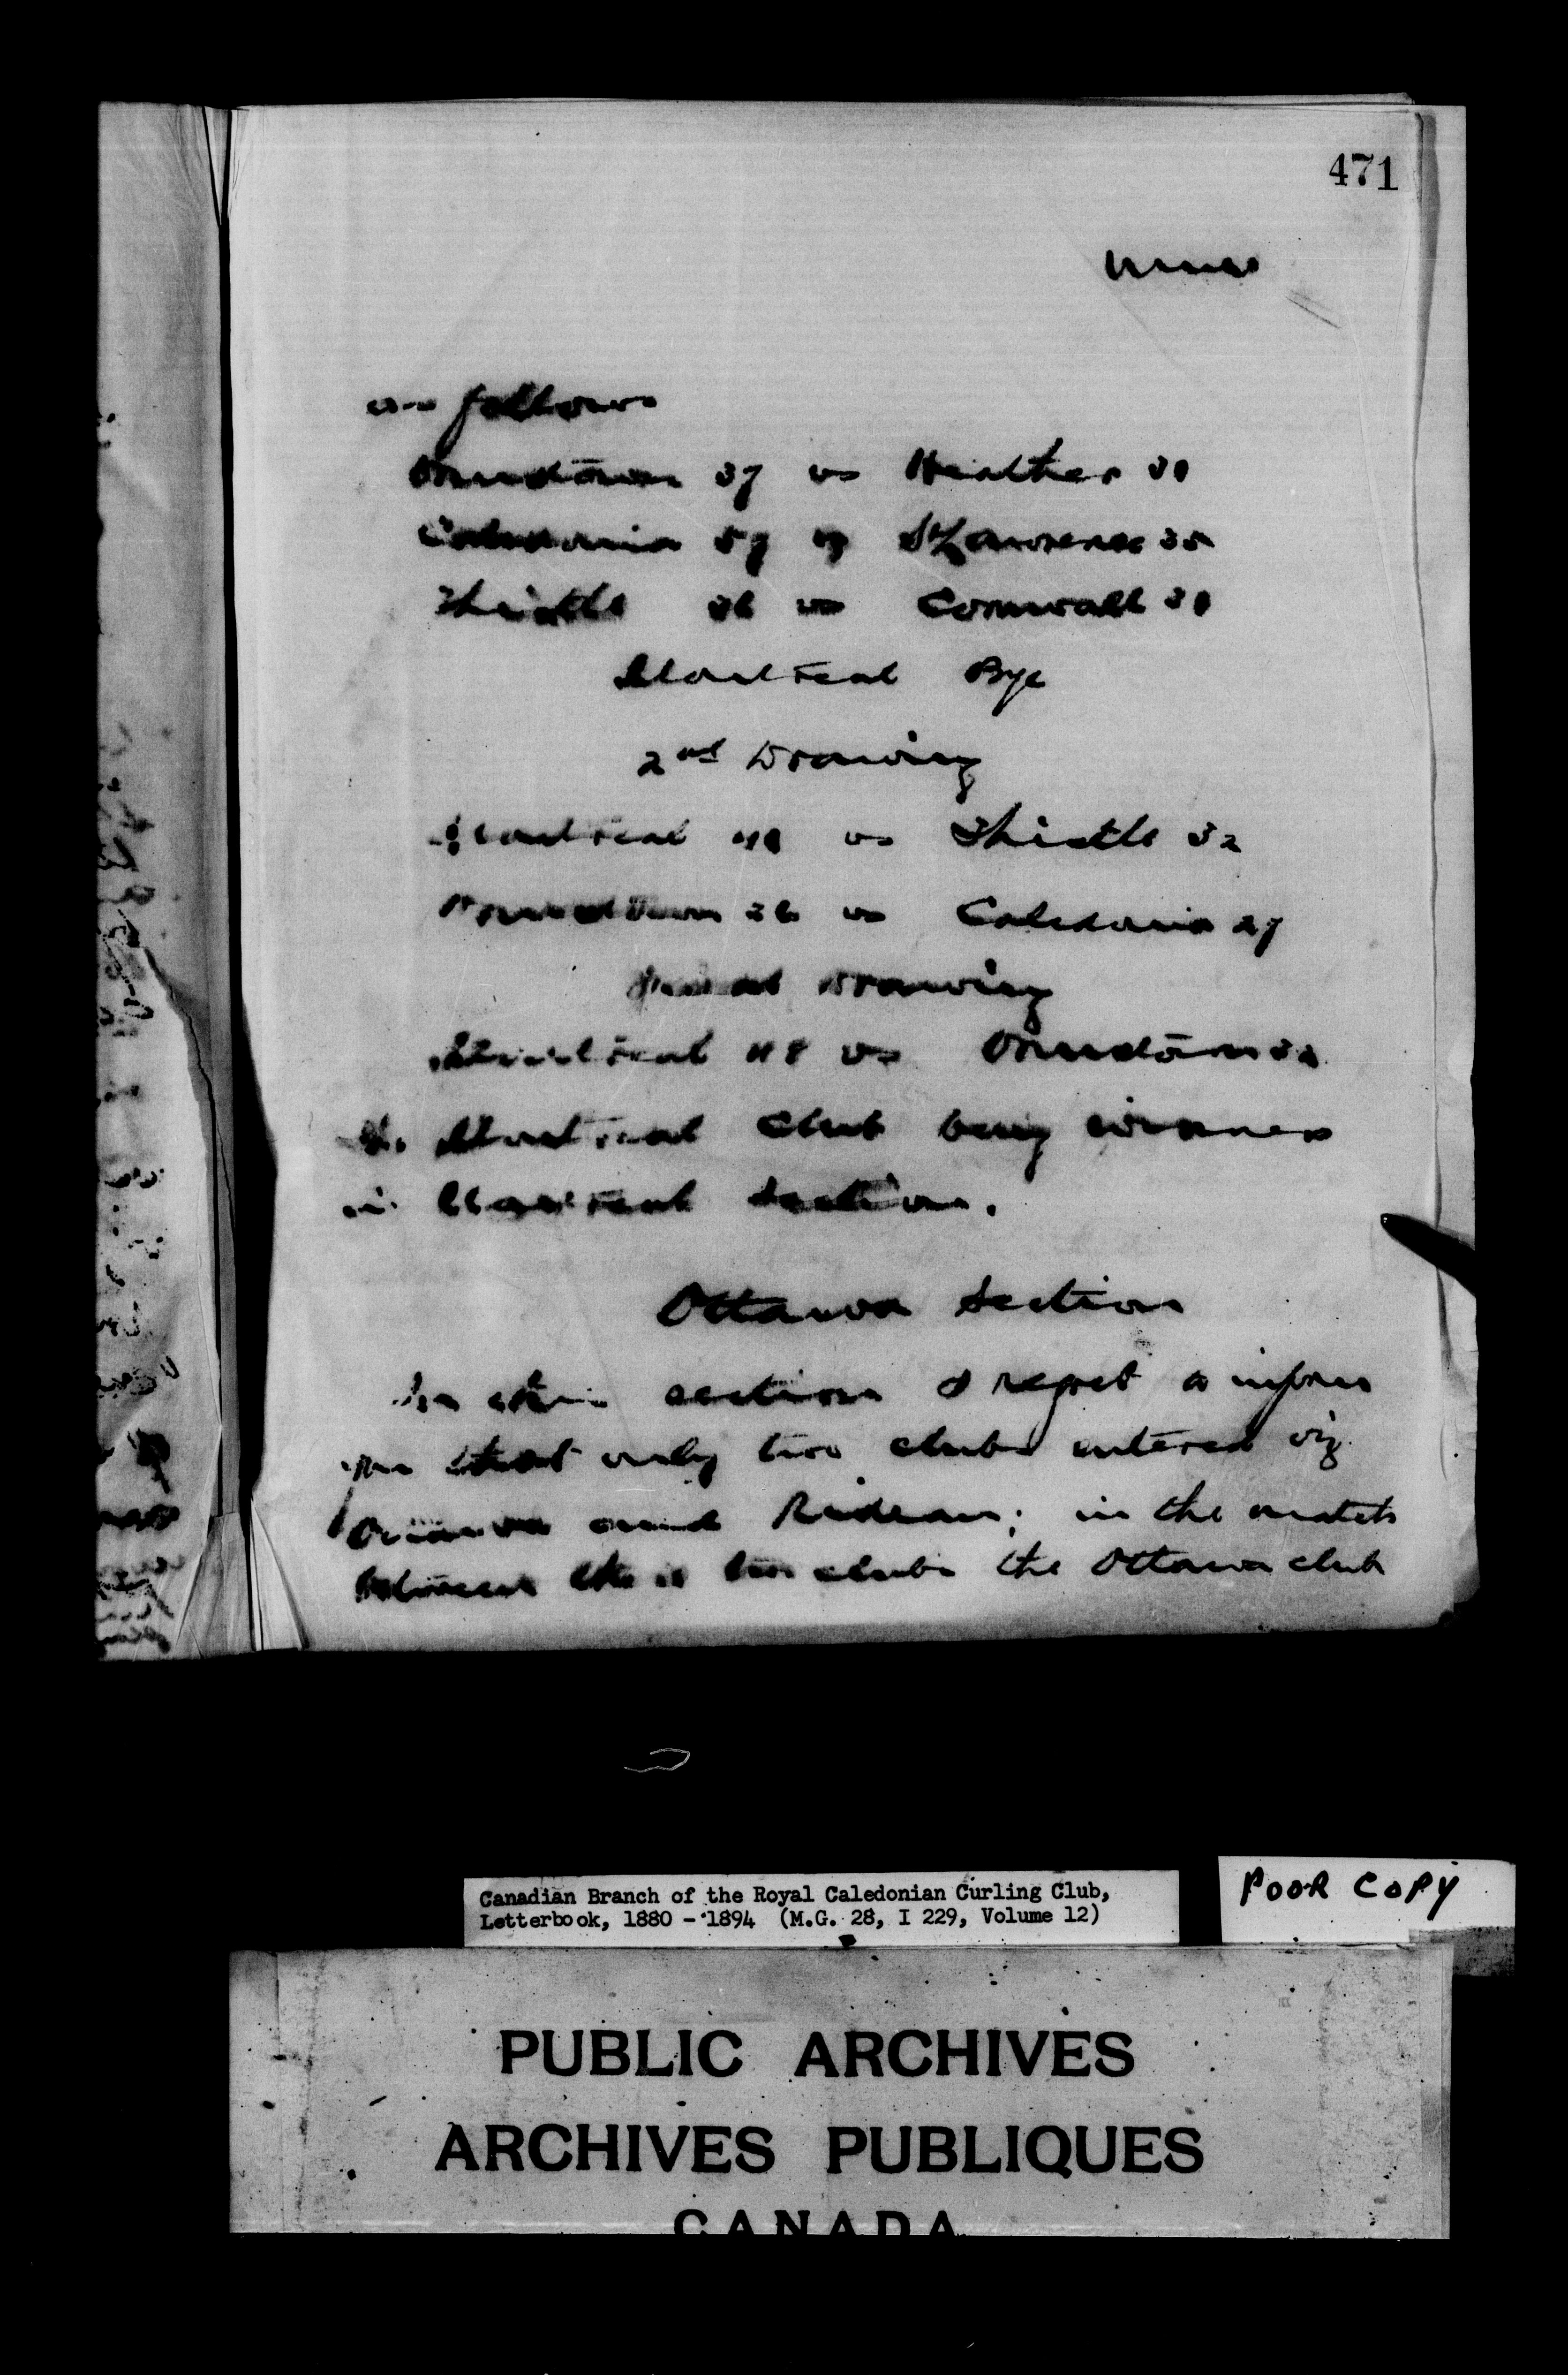 471
as follows
Ormstown 37 vs Heather
Caledonia vs St Lawrence 35
Thistle 36 vs Cornwall
Montreal Bye
2nd Drawing
Montreal vs Thistle 32
Ormstown 26 vs Caledonia
Final Drawing
Montreal 48 vs Ormstown
the Montreal Club being winners
in Montreal Section.
Ottawa Section
In this section I regret to inform
you that only two clubs entered viz
Ottawa and Rideau; in the match
between these two clubs the Ottawa club
Canadian Branch of the Royal Caledonian Curling Club,
Letterbook, 1880 - 1894 (M.G. 28, I 229, Volume 12)
POOR COPY
PUBLIC ARCHIVES
ARCHIVES PUBLIQUES
CANADA